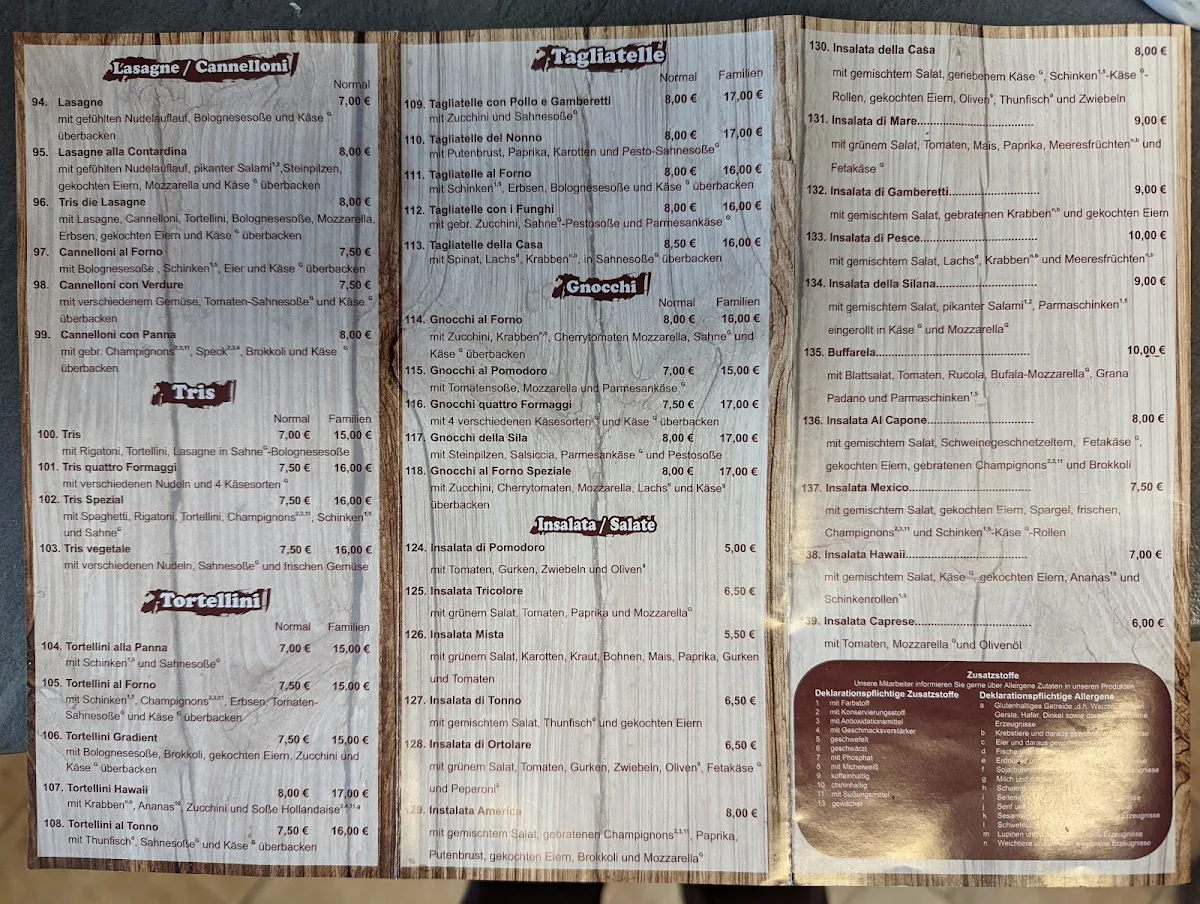 Lasagne / Cannelloni
Normal
94. Lasagne 7,00 €
mit gefühlten Nudelauflauf, Bolognesesoße und Käse G
überbacken
95. Lasagne alla Contardina 8,00 €
mit gefühlten Nudelauflauf, pikanter Salami1,2,Steinpilzen,
gekochten Eiern, Mozzarella und Käse G überbacken
96. Tris die Lasagne 8,00 €
mit Lasagne, Cannelloni, Tortellini, Bolognesesoße, Mozzarella,
Erbsen, gekochten Eiern und Käse G überbacken
97. Cannelloni al Forno 7,50 €
mit Bolognesesoße , Schinken1,5, Eier und Käse G überbacken
98. Cannelloni con Verdure 7,50 €
mit verschiedenem Gemüse, Tomaten-SahnesoßeG und Käse G
überbacken
99. Cannelloni con Panna 8,00 €
mit gebr. Champignons2,3,11, Speck2,3,4, Brokkoli und Käse G
überbacken
Tris
Normal Familien
100. Tris 7,00 € 15,00 €
mit Rigatoni, Tortellini, Lasagne in SahneG-Bolognesesoße
101. Tris quattro Formaggi 7,50 € 16,00 €
mit verschiedenen Nudeln und 4 Käsesorten G
102. Tris Spezial 7,50 € 16,00 €
mit Spaghetti, Rigatoni, Tortellini, Champignons2,3,11, Schinken1,5
und SahneG
103. Tris vegetale 7,50 € 16,00 €
mit verschiedenen Nudeln, SahnesoßeG und frischen Gemüse
Tortellini
Normal Familien
104. Tortellini alla Panna 7,00 € 15,00 €
mit Schinken1,5 und SahnesoßeG
105. Tortellini al Forno 7,50 € 15,00 €
mit Schinken1,5, Champignons2,3,11, Erbsen, Tomaten-
SahnesoßeG und Käse G überbacken
106. Tortellini Gradient 7,50 € 15,00 €
mit Bolognesesoße, Brokkoli, gekochten Eiern, Zucchini und
Käse G überbacken
107. Tortellini Hawaii 8,00 € 17,00 €
mit Krabbenn,b, Ananas16, Zucchini und Soße Hollandaise
108. Tortellini al Tonno 7,50 € 16,00 €
mit Thunfischd, SahnesoßeG und Käse G überbacken
Tagliatelle
Normal Familien
109. Tagliatelle con Pollo e Gamberetti 8,00 € 17,00 €
mit Zucchini und SahnesoßeG
110. Tagliatelle del Nonno 8,00 € 17,00 €
mit Putenbrust, Paprika, Karotten und Pesto-SahnesoßeG
111. Tagliatelle al Forno 8,00 € 16,00 €
mit Schinken1,5, Erbsen, Bolognesesoße und Käse G überbacken
112. Tagliatelle con i Funghi 8,00 € 16,00 €
mit gebr. Zucchini, SahneG-Pestosoße und Parmesankäse G
113. Tagliatelle della Casa 8,50 € 16,00 €
mit Spinat, Lachsd, Krabbenn,b, in SahnesoßeG überbacken
Gnocchi
Normal Familien
114. Gnocchi al Forno 8,00 € 16,00 €
mit Zucchini, Krabbenn,b, Cherrytomaten Mozzarella, SahneG und
Käse G überbacken
115. Gnocchi al Pomodoro 7,00 € 15,00 €
mit Tomatensoße, Mozzarella und Parmesankäse G
116. Gnocchi quattro Formaggi 7,50 € 17,00 €
mit 4 verschiedenen Käsesorten G und Käse G überbacken
117. Gnocchi della Sila 8,00 € 17,00 €
mit Steinpilzen, Salsiccia, Parmesankäse G und Pestosoße
118. Gnocchi al Forno Speziale 8,00 € 17,00 €
mit Zucchini, Cherrytomaten, Mozzarella, Lachsd und Käseg
überbacken
Insalata / Salate
124. Insalata di Pomodoro 5,00 €
mit Tomaten, Gurken, Zwiebeln und Oliven9
125. Insalata Tricolore 6,50 €
mit grünem Salat, Tomaten, Paprika und MozzarellaG
126. Insalata Mista 5,50 €
mit grünem Salat, Karotten, Kraut, Bohnen, Mais, Paprika, Gurken
und Tomaten
127. Insalata di Tonno 6,50 €
mit gemischtem Salat, Thunfischd und gekochten Eiern
128. Insalata di Ortolare 6,50 €
mit grünem Salat, Tomaten, Gurken, Zwiebeln, Oliven9, Fetakäse G
und Peperoni2
129. Instalata America 8,00 €
mit gemischtem Salat, gebratenen Champignons2,3,11, Paprika,
Putenbrust, gekochten Eiern, Brokkoli und MozzarellaG
130. Insalata della Casa 8,00 €
mit gemischtem Salat, geriebenem Käse G, Schinken1,5-Käse G-
Rollen, gekochten Eiern, Oliven9, Thunfischd und Zwiebeln
131. Insalata di Mare................................. 9,00 €
mit grünem Salat, Tomaten, Mais, Paprika, Meeresfrüchtenn,b und
Fetakäse G
132. Insalata di Gamberetti......................... 9,00 €
mit gemischtem Salat, gebratenen Krabbenn,b und gekochten Eiern
133. Insalata di Pesce................................ 10,00 €
mit gemischtem Salat, Lachsd, Krabbenn,b und Meeresfrüchtenn,b
134. Insalata della Silana............................ 9,00 €
mit gemischtem Salat, pikanter Salami1,2, Parmaschinken1,5
eingerollt in Käse G und MozzarellaG
135. Buffarela........................................... 10,00 €
mit Blattsalat, Tomaten, Rucola, Bufala-MozzarellaG, Grana
Padano und Parmaschinken1,5
136. Insalata Al Capone............................. 8,00 €
mit gemischtem Salat, Schweinegeschnetzeltern, Fetakäse G,
gekochten Eiern, gebratenen Champignons2,3,11 und Brokkoli
137. Insalata Mexico.................................. 7,50 €
mit gemischtem Salat, gekochten Eiern, Spargel, frischen,
Champignons2,3,11 und Schinken1,5-Käse G-Rollen
38. Insalata Hawaii.................................. 7,00 €
mit gemischtem Salat, Käse G, gekochten Eiern, Ananas16 und
Schinkenrollen1,5
39. Insalata Caprese................................ 6,00 €
mit Tomaten, Mozzarella G und Olivenöl
Zusatzstoffe
Unsere Mitarbeiter informieren Sie gerne über Allergene Zutaten in unseren Produkten
Deklarationspflichtige Zusatzstoffe
1 mit Farbstoff
2 mit Konservierungsstoff
3 mit Antioxidationsmittel
4 mit Geschmacksverstärker
5 geschwefelt
6 geschwärzt
7 mit Phosphat
8 mit Michelweiß
9 koffeinhaltig
10 chininhaltig
11 mit Süßungsmittel
13 gewachst
Deklarationspflichtige Allergene
a Glutenhaltiges Getreide ,d.h. Weizen,
Gerste, Hafer, Dinkel sowie
Erzeugnisse
b Krebstiere und daraus
c Eier und daraus
d
e
f
g Milch und
h
i
j Senf
k Erzeugnisse
l
m Lupinen und Erzeugnisse
n Weichtiere Erzeugnisse